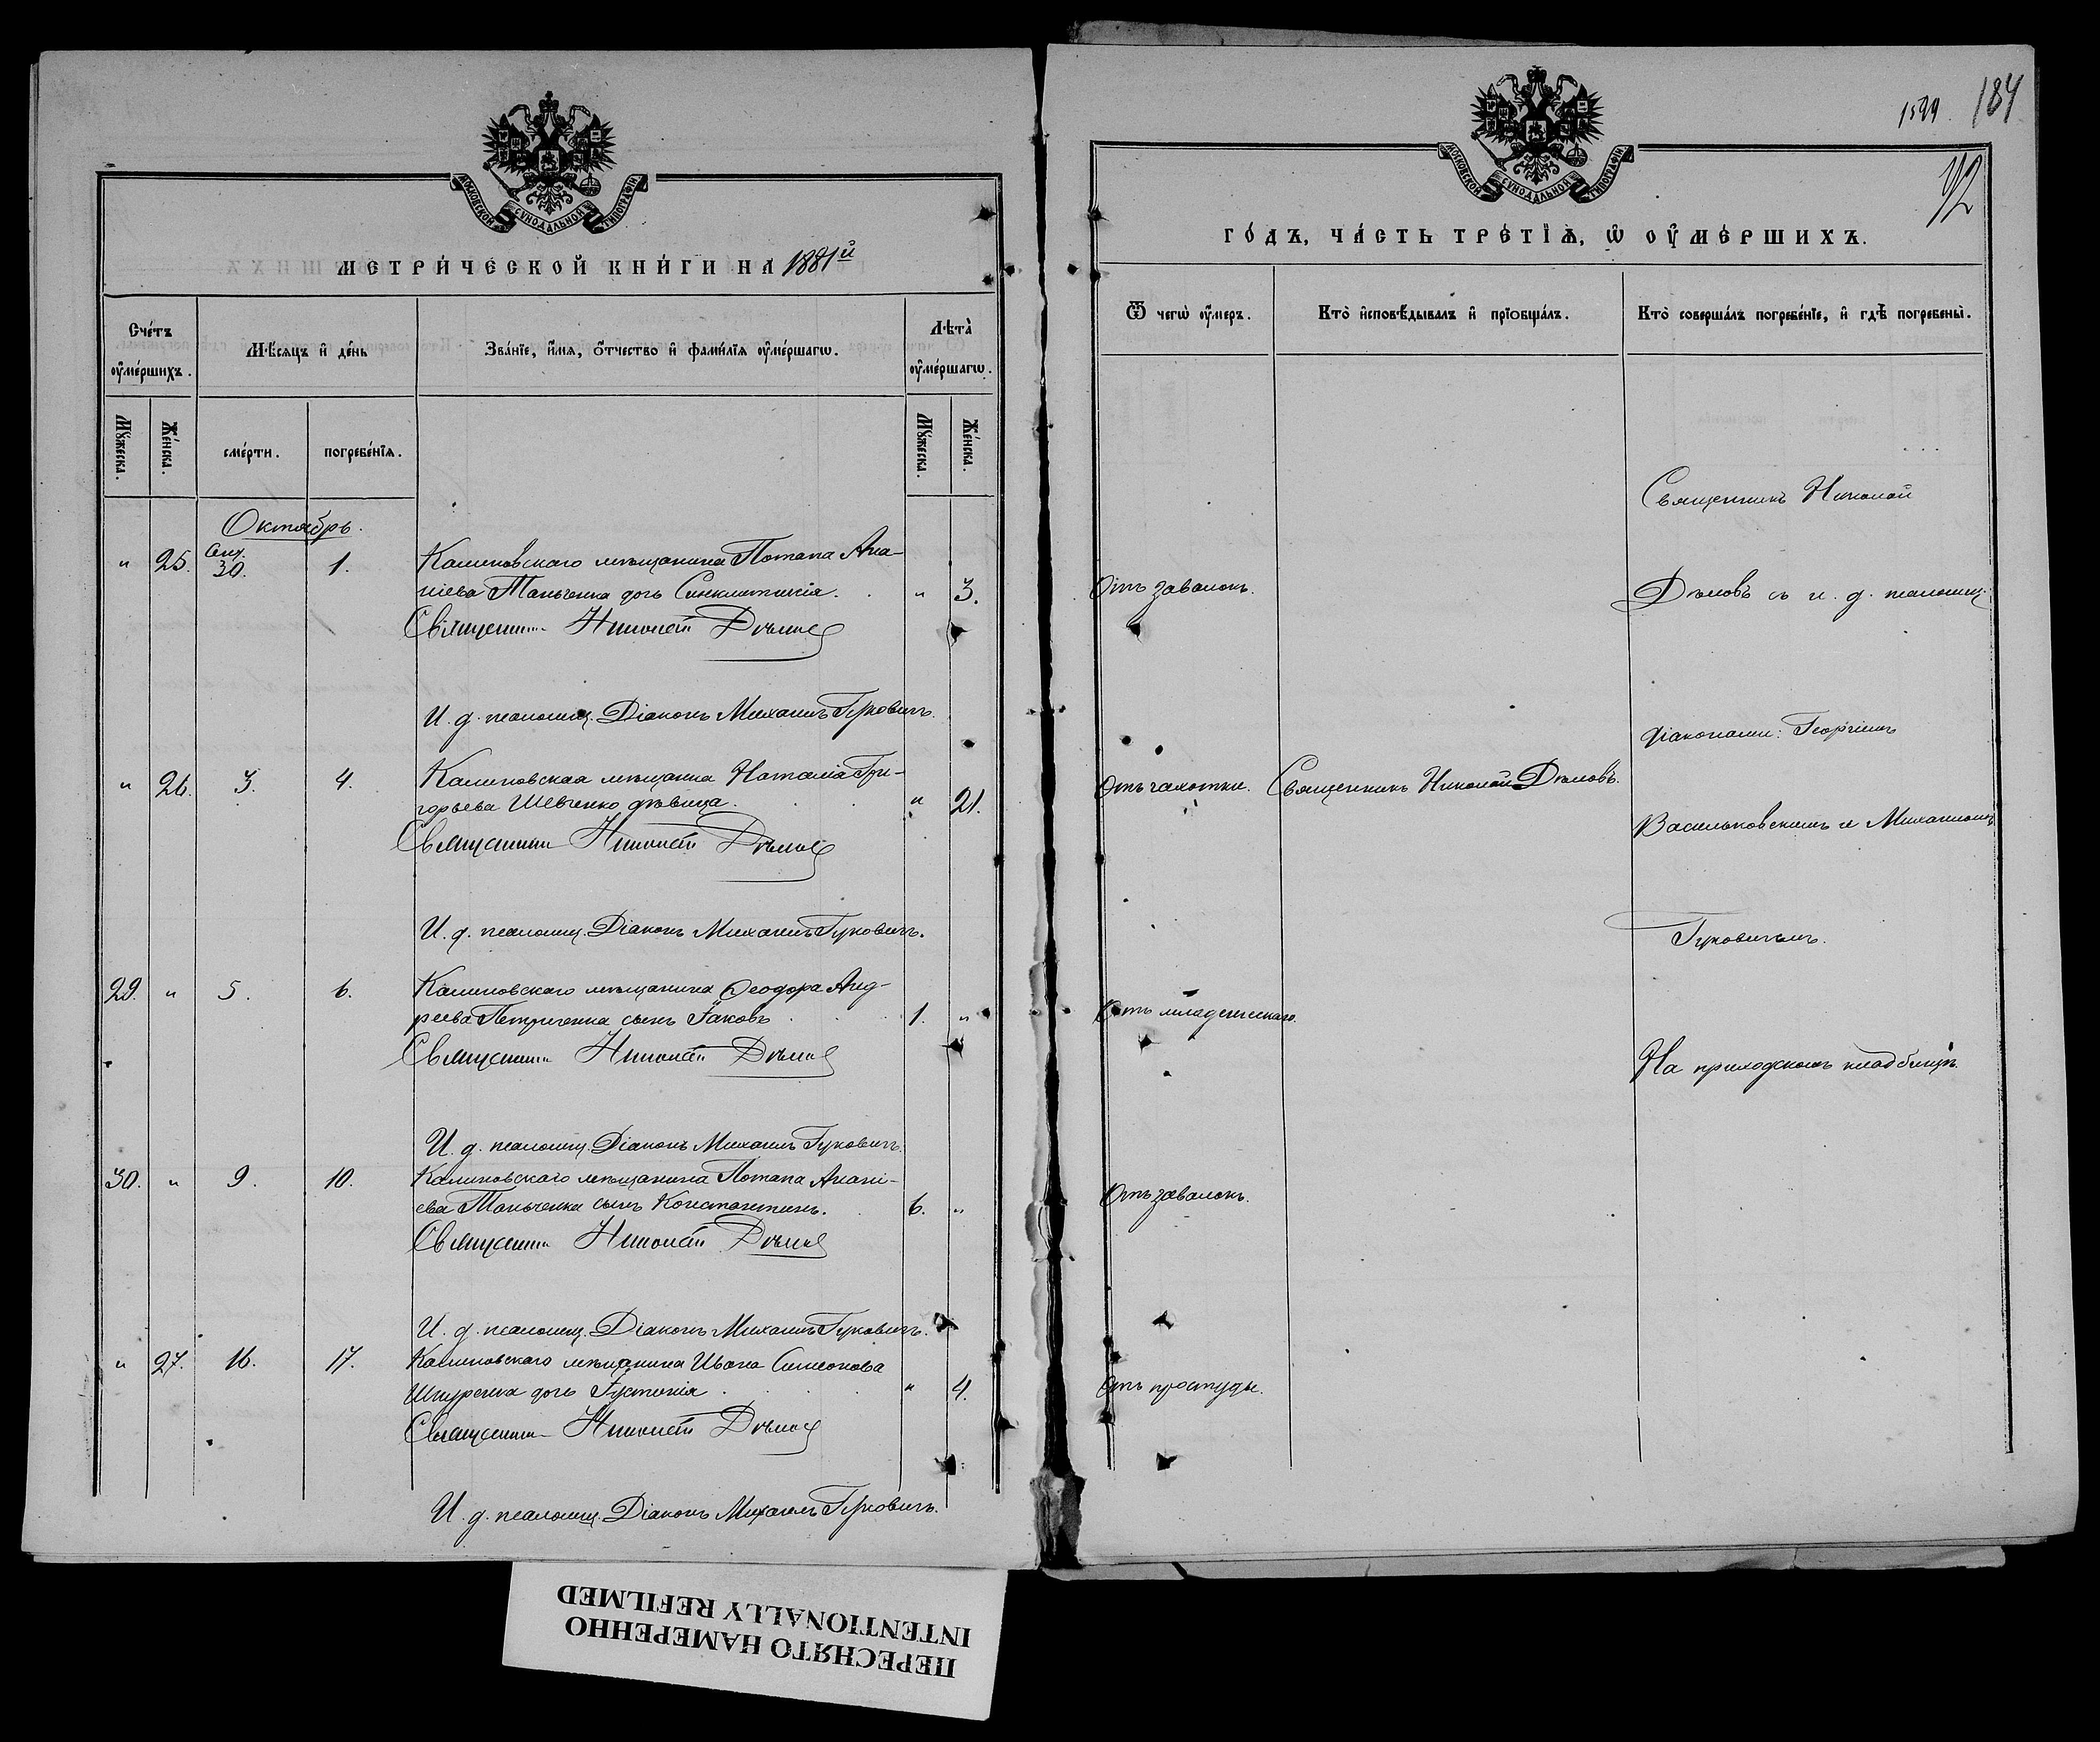 МОСКОВСКОЙ СѴНОДАЛЬНОЙ ТИПОГРАФІИ
МЕТРИ́ЧЕСКОЙ КНИ́ГИ НА 1881й
Сче́тъ ᲂу҆ме́ршихъ.
Мѣ́сѧцъ и҆ де́нь
Зва́нїе, и҆́мѧ, ѻ҆́тчество и҆ фами́лїѧ ᲂу҆ме́ршагѡ.
Лѣ́та ᲂу҆ме́ршагѡ.
Мꙋ́жеска.
Же́нска.
сме́рти.
погребе́нїѧ.
Мꙋ́жеска.
Же́нска.
Октябрь.
" 25. Сент. 30. 1. Калиновскаго мѣщанина Потапа Ана-
ніева Таньченка дочь Синклитикія. " 3.
Священникъ Николай Дѣмов
И. д. псаломщ. Діаконъ Михаилъ Гуковичъ.
" 26. 3. 4. Калиновская мѣщанка Наталія Гри-
горьева Шевченко дѣвица. " 21.
Священникъ Николай Дѣмов
И. д. псаломщ. Діаконъ Михаилъ Гуковичъ.
29. " 5. 6. Калиновскаго мѣщанина Ѳеодора Анд-
реева Петриченка сынъ Іаковъ 1. "
Священникъ Николай Дѣмов
И. д. псаломщ. Діаконъ Михаилъ Гуковичъ.
30. " 9. 10. Калиновскаго мѣщанина Потапа Анані-
ева Таньченка сынъ Константинъ. 6. "
Священникъ Николай Дѣмов
И. д. псаломщ. Діаконъ Михаилъ Гуковичъ.
" 27. 16. 17. Калиновскаго мѣщанина Ивана Симеонова
Шкуренка дочь Іустинія " 4.
Священникъ Николай Дѣмов
И. д. псаломщ. Діаконъ Михаилъ Гуковичъ.
184
72
МОСКОВСКОЙ СѴНОДАЛЬНОЙ ТИПОГРАФІИ
ГО́ДЪ, ЧА́СТЬ ТРЕ́ТЇѦ, Ѡ҆ ОУ҆МЕ́РШИХЪ.
Ѿ чегѡ̀ ᲂу҆́меръ.
Кто̀ и҆сповѣ́дывалъ и҆ прїѡбща́лъ.
Кто̀ соверша́лъ погребе́нїе, и҆ гдѣ̀ погребены̀.
Священникъ Николай
Отъ завалокъ.
Дѣмовъ съ и. д. псаломщ.
Діаконами: Георгіемъ
Отъ чахотки. Священникъ Николай Дѣмовъ.
Васильковскимъ и Михаиломъ
Гуковичемъ.
Отъ младенческаго.
На приходскомъ кладбищѣ.
Отъ завалокъ.
Отъ простуды.
ПЕРЕСНЯТО НАМЕРЕННО
INTENTIONALLY REFILMED